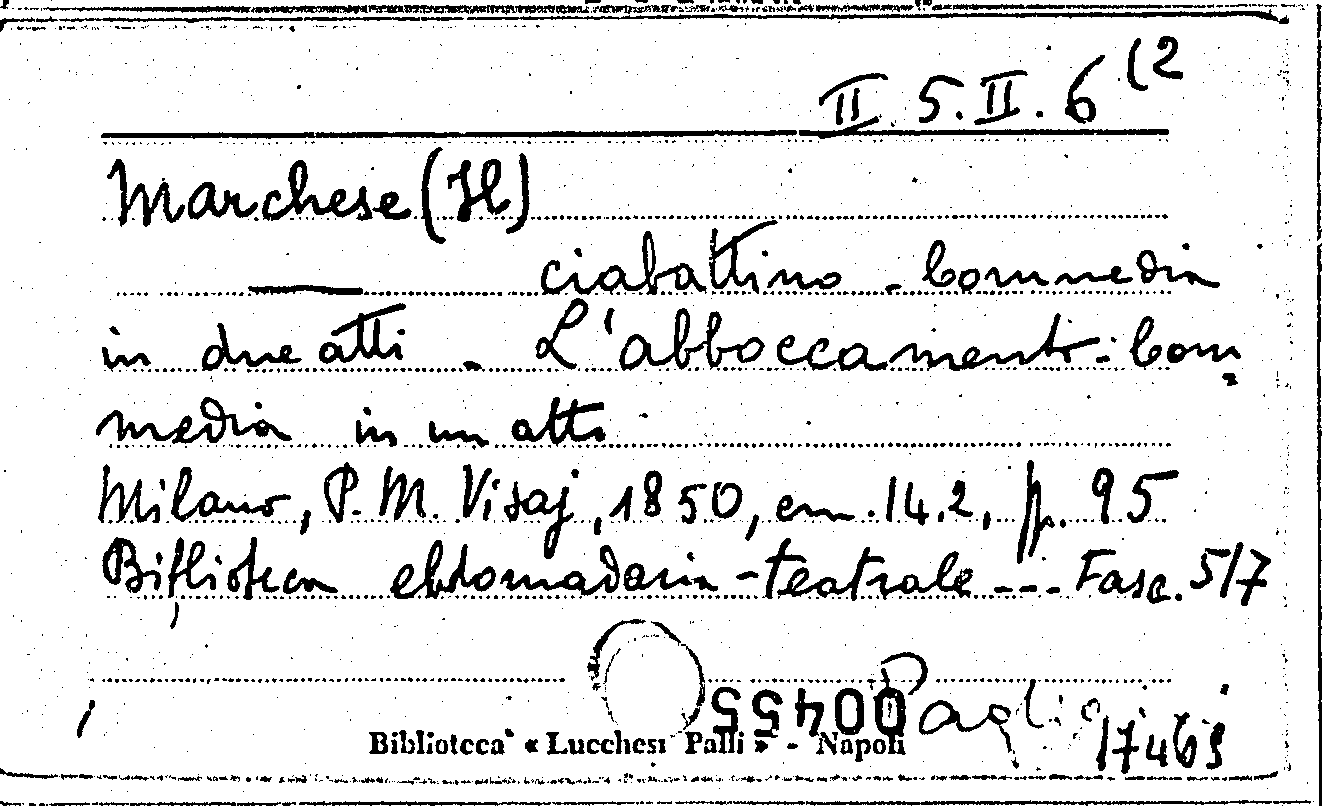 II 5.II.6 (2
Marchese (Il)
—— ciabattino - Commedia
in due atti - L'abboccamento: Com=
media in un atto
Milano, P. M. Visaj, 1850, cm. 14.2, pp. 95
Biblioteca ebdomadaria-teatrale --- Fasc. 517
004555
17469
Biblioteca « Lucchesi Palli » - Napoli